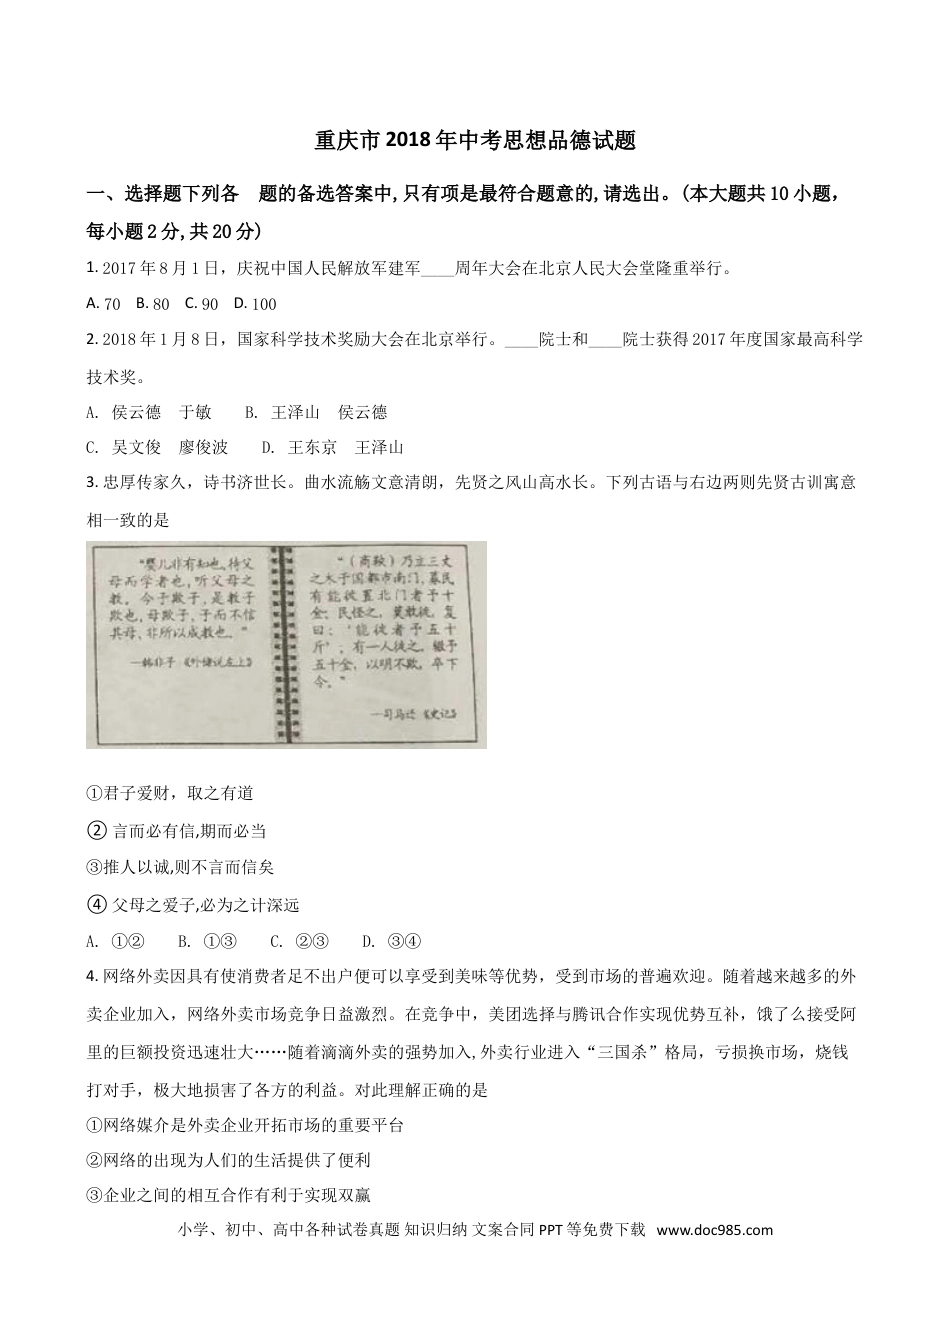 重庆市 2018 年中考思想品德试题
一、选择题下列各 题的备选答案中,只有项是最符合题意的,请选出。(本大题共 10 小题，
每小题 2 分,共 20 分)
1. 2017 年 8 月 1 日，庆祝中国人民解放军建军____周年大会在北京人民大会堂隆重举行。
A. 70 B. 80 C. 90 D. 100
2. 2018 年 1 月 8 日，国家科学技术奖励大会在北京举行。____院士和____院士获得 2017 年度国家最高科学
技术奖。
A. 侯云德 于敏 B. 王泽山 侯云德
C. 吴文俊 廖俊波 D. 王东京 王泽山
3. 忠厚传家久，诗书济世长。曲水流觞文意清朗，先贤之风山高水长。下列古语与右边两则先贤古训寓意
相一致的是
“婴儿非有知也,待父
母而学者也,听父母之
教。今子欺子,是教子
欺也,母欺子,子而不信
其母,非所以成教也。”
—韩非子《外储说左上》
“(商鞅)乃立三丈
之木于国都市南门,募民
有能徙置北门者予十
金;民怪之,莫敢徙,复
曰:‘能徙者予五十
斤’;有一人徙之,辄予
五十金,以明不欺,卒下
令。”
—司马迁《史记》
①君子爱财，取之有道
② 言而必有信,期而必当
③推人以诚,则不言而信矣
④ 父母之爱子,必为之计深远
A. ①② B. ①③ C. ②③ D. ③④
4. 网络外卖因具有使消费者足不出户便可以享受到美味等优势，受到市场的普遍欢迎。随着越来越多的外
卖企业加入，网络外卖市场竞争日益激烈。在竞争中，美团选择与腾讯合作实现优势互补，饿了么接受阿
里的巨额投资迅速壮大……随着滴滴外卖的强势加入,外卖行业进入“三国杀”格局，亏损换市场，烧钱
打对手，极大地损害了各方的利益。对此理解正确的是
①网络媒介是外卖企业开拓市场的重要平台
②网络的出现为人们的生活提供了便利
③企业之间的相互合作有利于实现双赢
小学、初中、高中各种试卷真题 知识归纳 文案合同 PPT 等免费下载 www.doc985.com